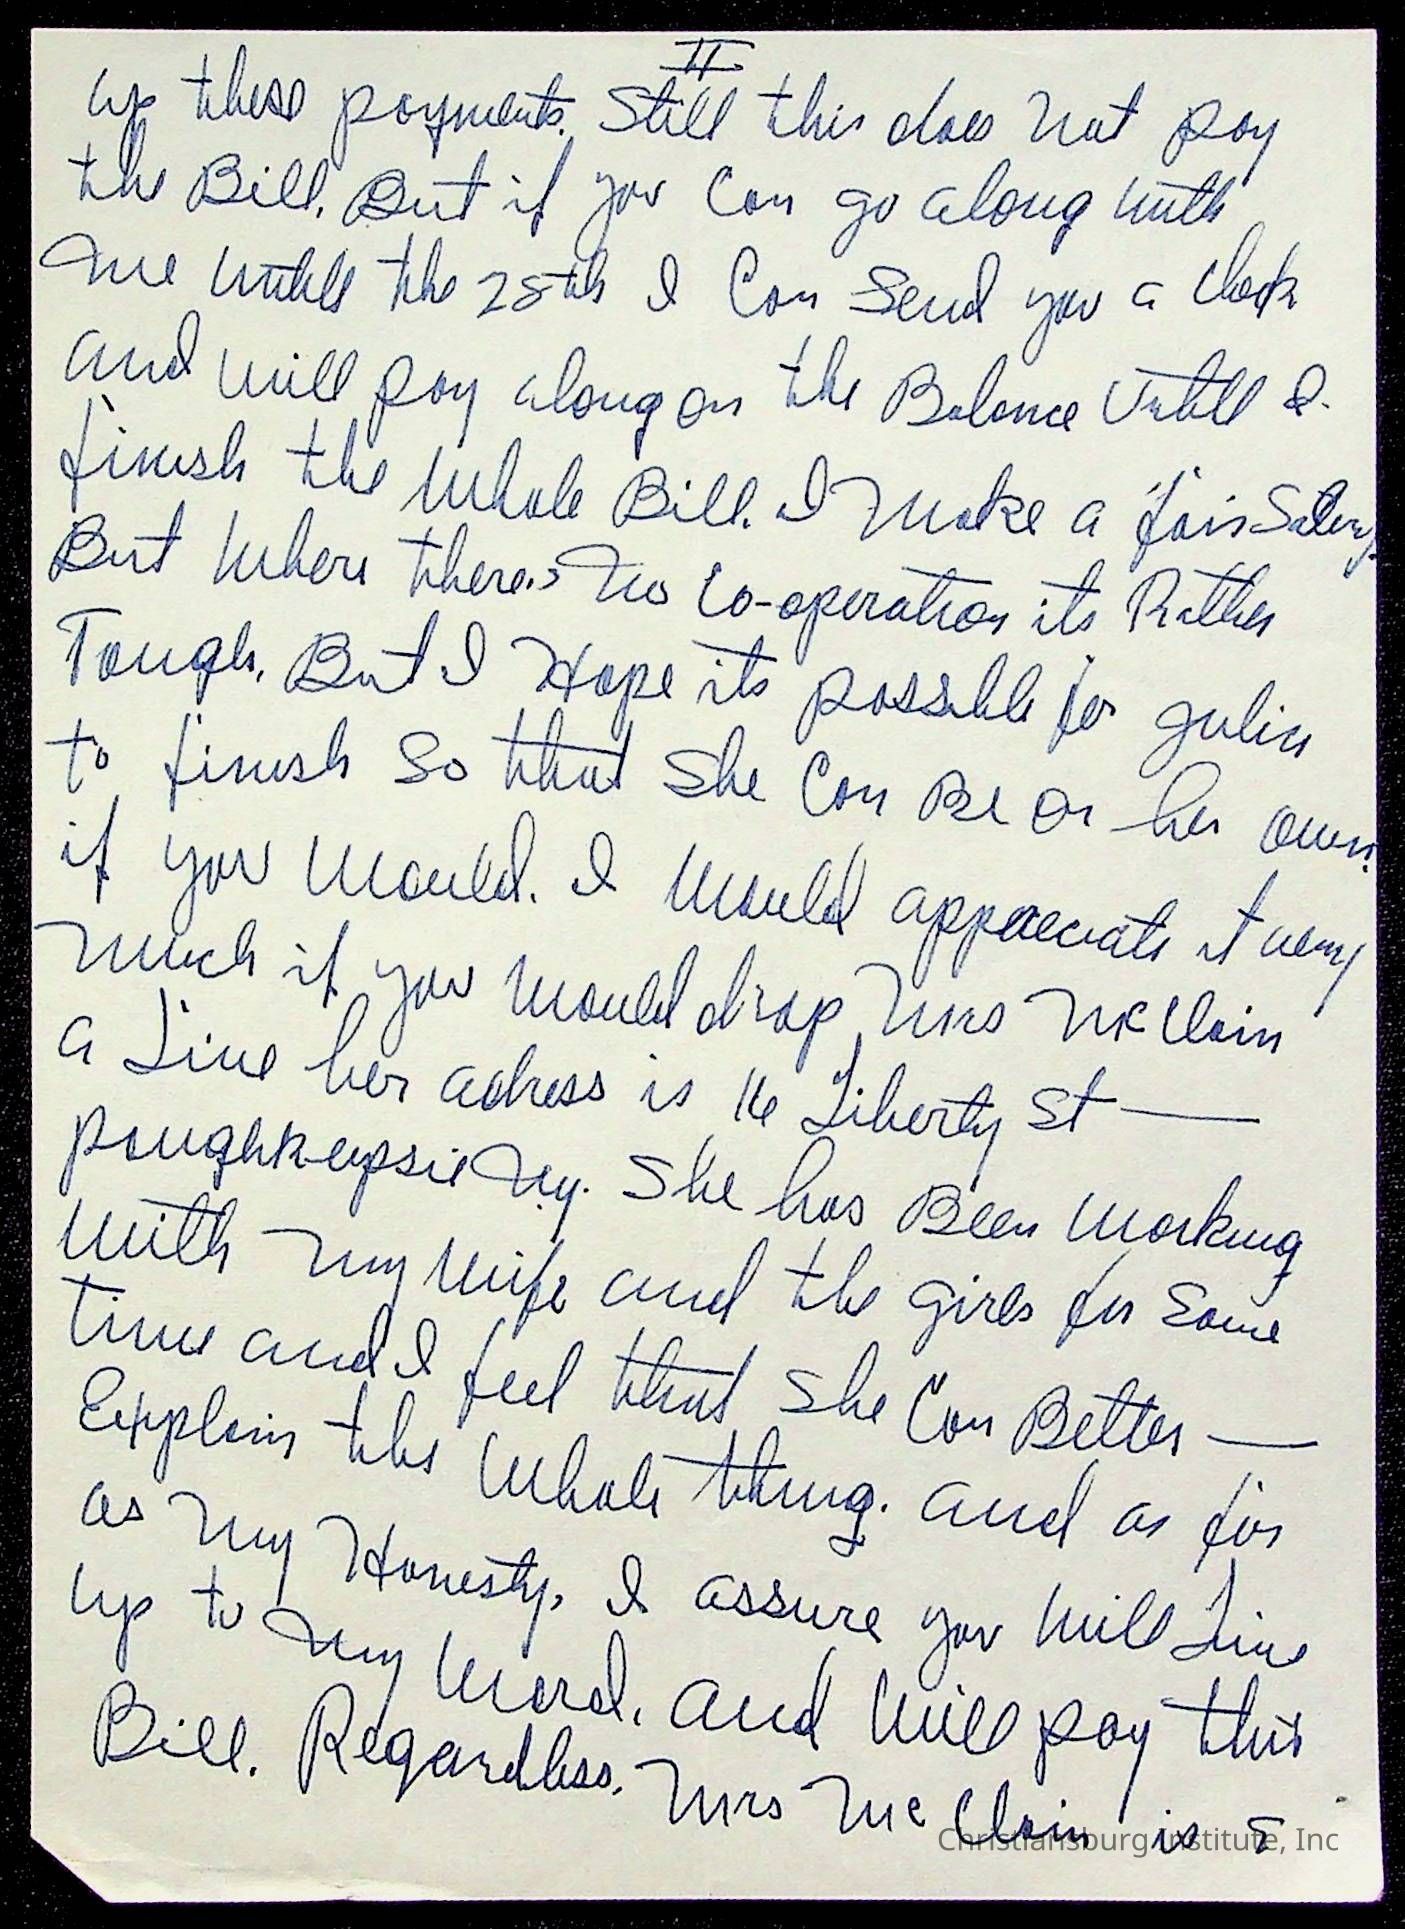 II
up these payments. Still this does not pay
the Bill. But if you Can go along with
me untill the 28th I Can Send you a check
and will pay along on the Balance Untill I.
finish the whole Bill. I Make a fair Salery.
But where there,s no Co-operation its Rather
Tough. But I Hope its possible for
to finish So that She Can Be On her own.
if you would. I would appreciate it very
much if you would drop Mrs McClain
a Line her adress is 16 Liberty St —
poughkeepsie Ny. She has Been Working
with my wife and the girls for Some
time and I feel that She Can Better —
Explain the whole thing. and as for
as my Honesty, I assure you will Live
up to my word. and will pay this
Bill. Regardless. Mrs McClain is
Christiansburg Institute, Inc